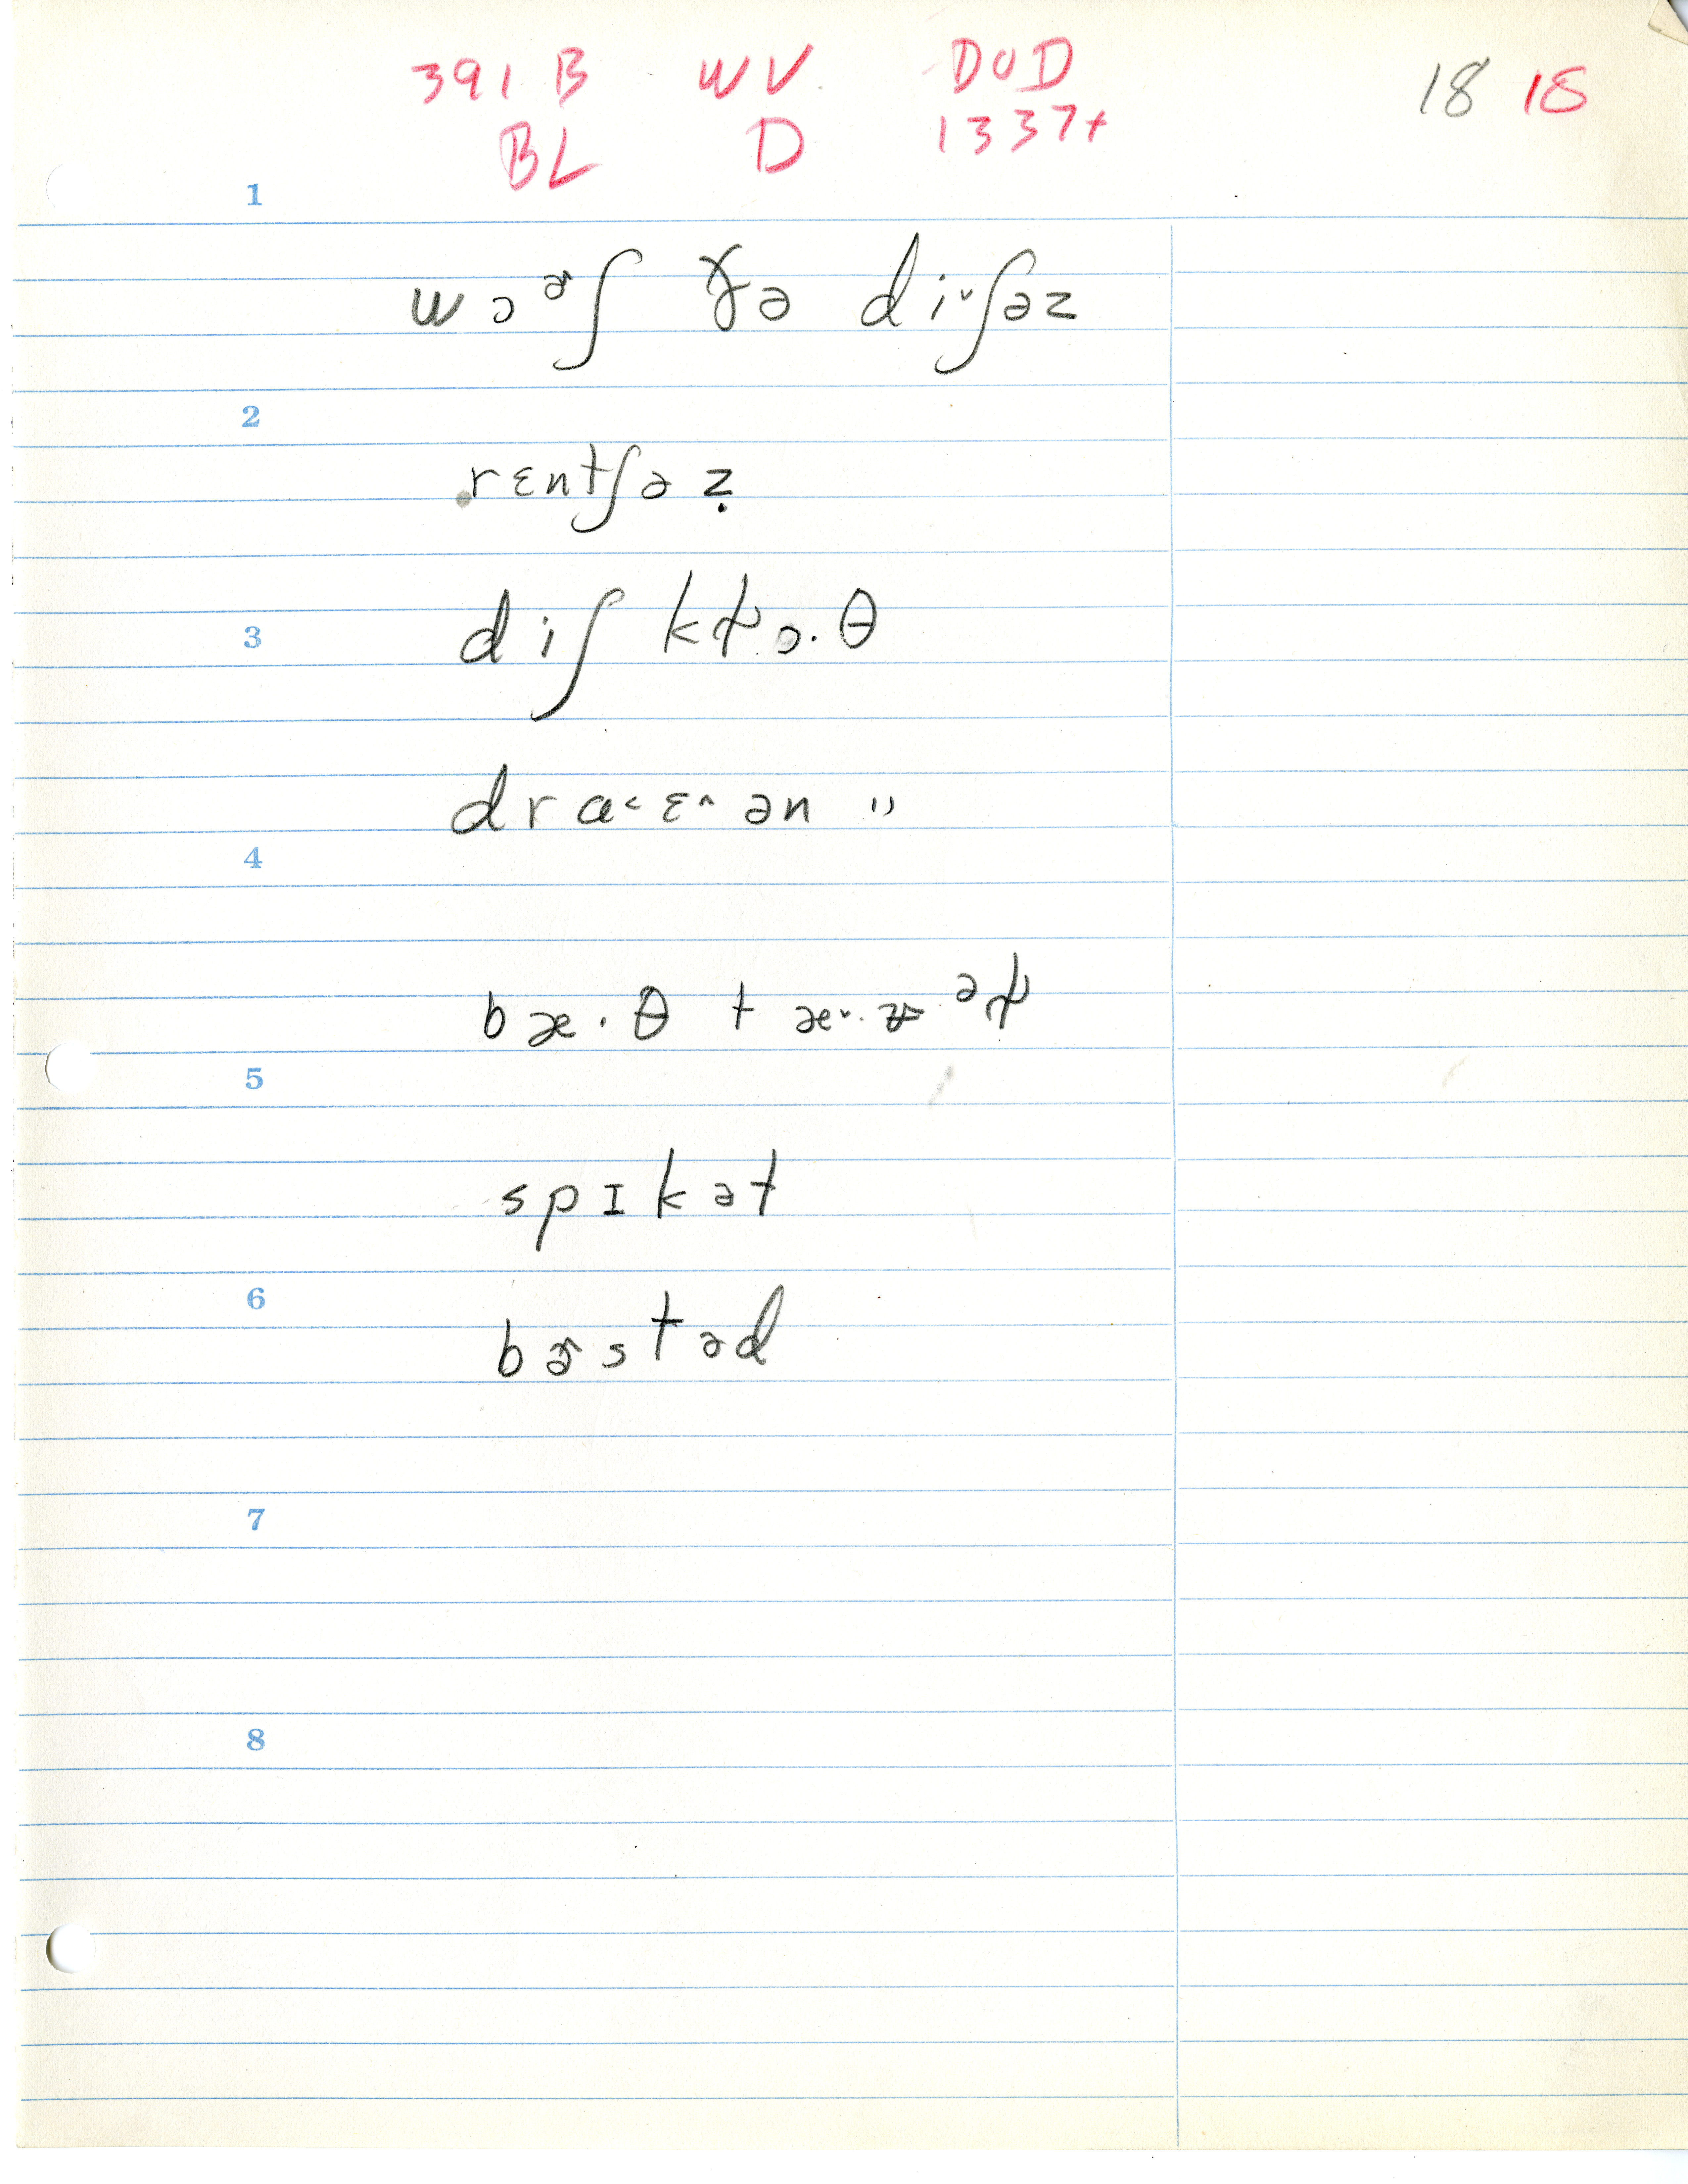 391 B WV DOD 18 18
BL D 1337+
1
wɔɚʃ ðə di˅ʃəz
2
rɛntʃəẓ
3
diʃ kɫɔ.θ
draɪ˂ɛ˄ən "
4
bæ.θ tæ˅.
5
spɪkət
6
bɚstəd
7
8